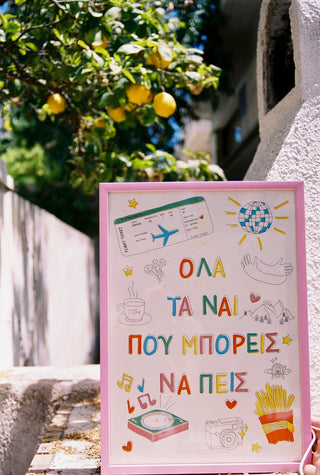 ΟΛΑ
ΤΑ ΝΑΙ
ΠΟΥ ΜΠΟΡΕΙΣ
ΝΑ ΠΕΙΣ